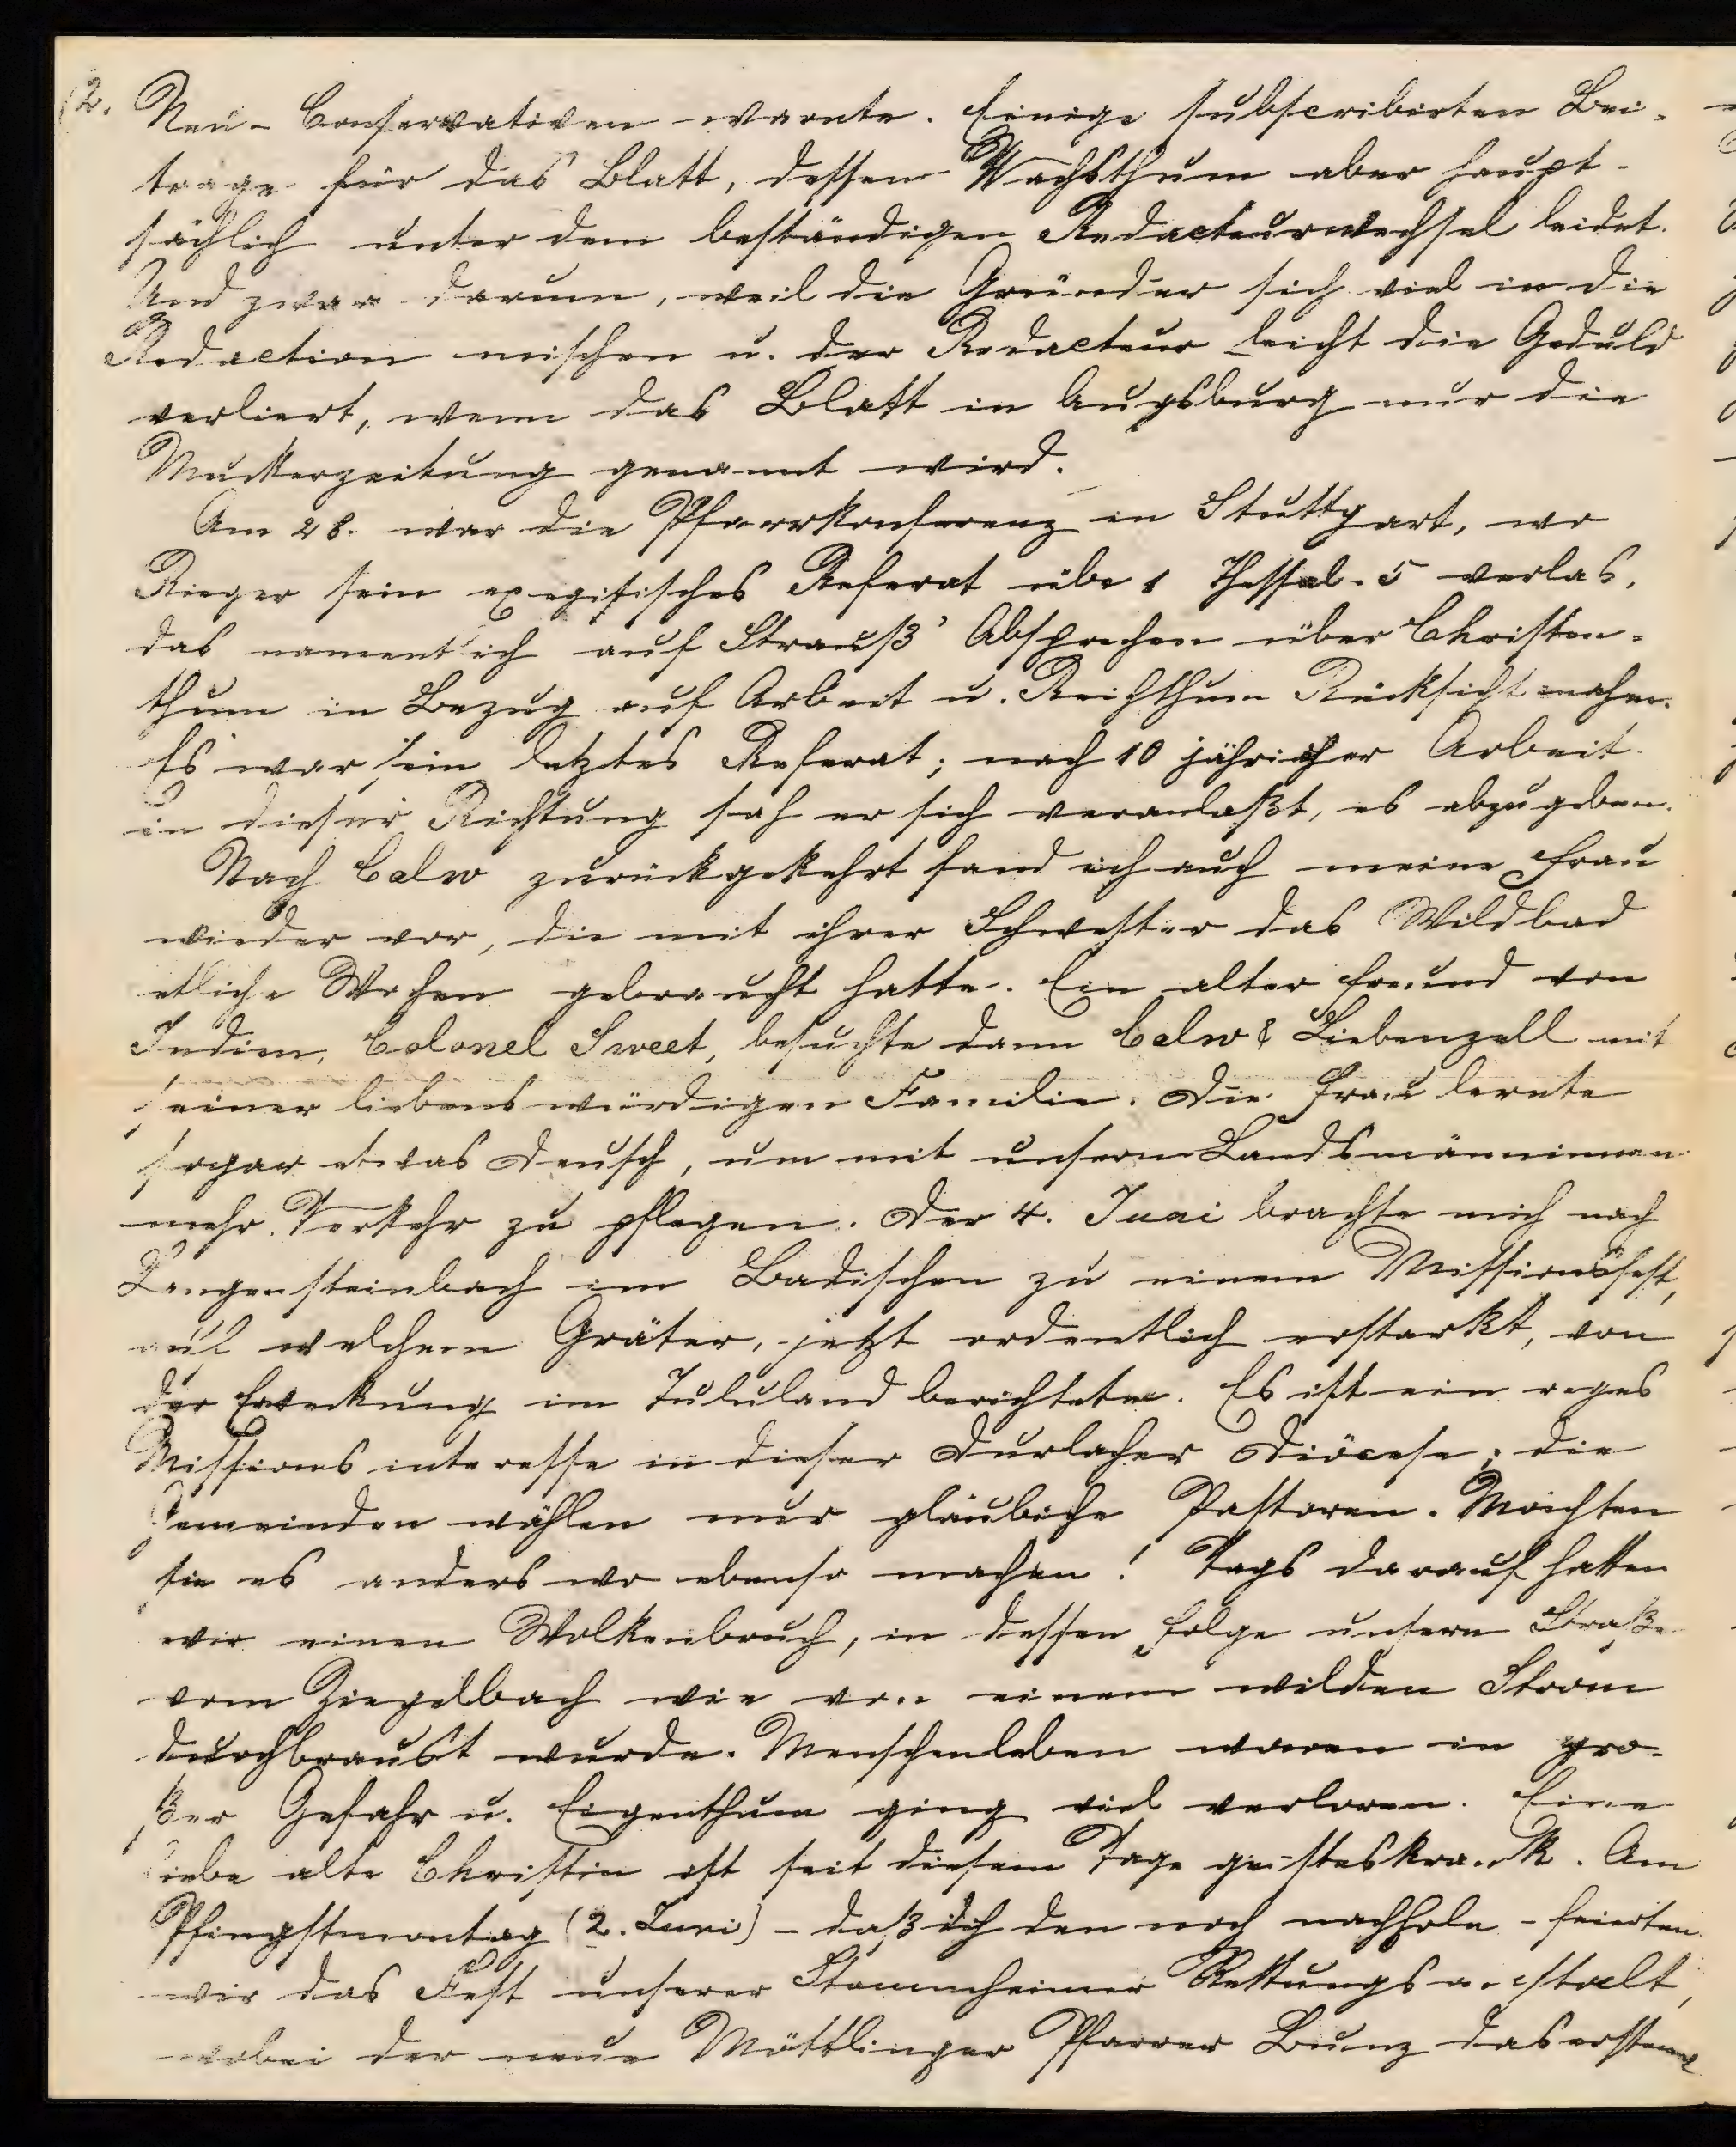 12. Neu-Conservativen warnte. Einige subscribirten Bei-
träge für das Blatt, dessen Wachsthum aber haupt-
sächlich unter dem beständigen Redacteurwechsel leidet.
Und zwar darum, weil die Gründer sich viel in die
Redaction mischen u. der Redacteur leicht die Geduld
verliert, wenn das Blatt in Augsburg nur die
Muckerzeitung genannt wird.
Am 28. war die Pfarrkonferenz in Stuttgart, wo
Rieger sein exegitisches Referat übe 1 Thessal. 5 verlas,
das namentlich auf Strauß' Absprechen über Christen-
thum in Bezug auf Arbeit u. Reichthum Rücksicht nahm.
Es war sein letztes Referat; nach 10 jähricher Arbeit
in dieser Richtung sah er sich veranlaßt, es abzugeben.
Nach Calw zurückgekehrt fand ich auch meine Frau
wieder vor, die mit ihrer Schwester das Wildbad
etliche Wochen gebraucht hatte. Ein alter Freund von
Indien, Colonel Sweet, besuchte dann Calw & Liebenzell mit
seiner liebenswürdigen Familie. Die Frau lernte
sogar etwas Deusch, um mit unsern Landsmänninnen
mehr Verkehr zu pflegen. Der 4. Juni brachte mich nach
Langensteinbach im Badischen zu einem Missionsfest,
auf welchem Gräter, jetzt ordentlich erstarkt, von
der Erweckung im Tululand berichtete. Es ist ein reges
Missionsinteresse in dieser Durlacher Diöcese; die
Gemeinden wählen nur gläubiche Pastoren. Möchten
sie es anderswo ebenso machen! Tags darauf hatten
wir einen Wolkenbruch, in dessen Folge unsere Straße
vom Ziegelbach wie von einem wilden Strom
durchbraust wurde. Menschenleben waren in gro-
ßer Gefahr u. Eigenthum ging viel verloren. Eine
liebe alte Christin ist seit diesem Tage geisteskrank. Am
Pfingstmontag (2. Juni) - daß ich den noch nachhole - feierten
wir das Fest unserer Stammheimer Rettungsanstalt,
wobei der neue Möttlinger Pfarrer Bunz das erstemal